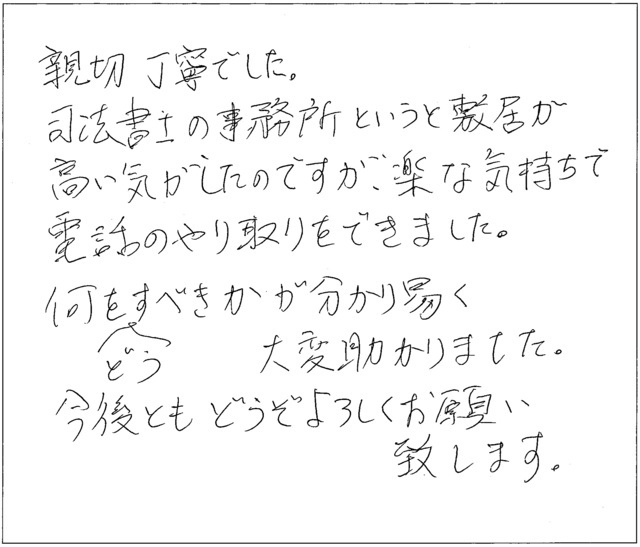 親切丁寧でした。
司法書士の事務所というと敷居が
高い気がしたのですが、楽な気持ちで
電話のやり取りをできました。
何をすべきかが分かり易く
どう
大変助かりました。
今後ともどうぞよろしくお願い
致します。